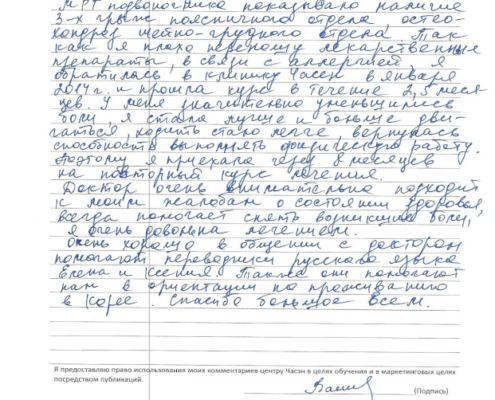 МРТ позвоночника показывало наличие
3-х грыж поясничного отдела, остео-
хондроз шейно-грудного отдела. Так
как я плохо переношу лекарственные
препараты, в связи с аллергией, я
обратилась в клинику Часен в января
2014 г. и прошла курс в течение 2,5 меся-
цев. У меня значительно уменьшились
боли, я стала лучше и больше дви-
гаться, ходить стало легче, вернулась
способность выполнять физическую работу.
Поэтому я приехала через 8 месяцев
на повторный курс лечения.
Доктор очень внимательно подходит
к моим жалобам о состоянии здоровья,
всегда помогает снять возникшие боли,
я очень довольна лечением.
Очень хорошо в общении с доктором
помогают переводчики русского языка
Елена и Ксения. Также они помогают
нам в ориентации по проживанию
в Корее. Спасибо большое всем.
Я предоставляю право использования моих комментариев центру Часэн в целях обучения и в маркетинговых целях
посредством публикаций.
(Подпись)